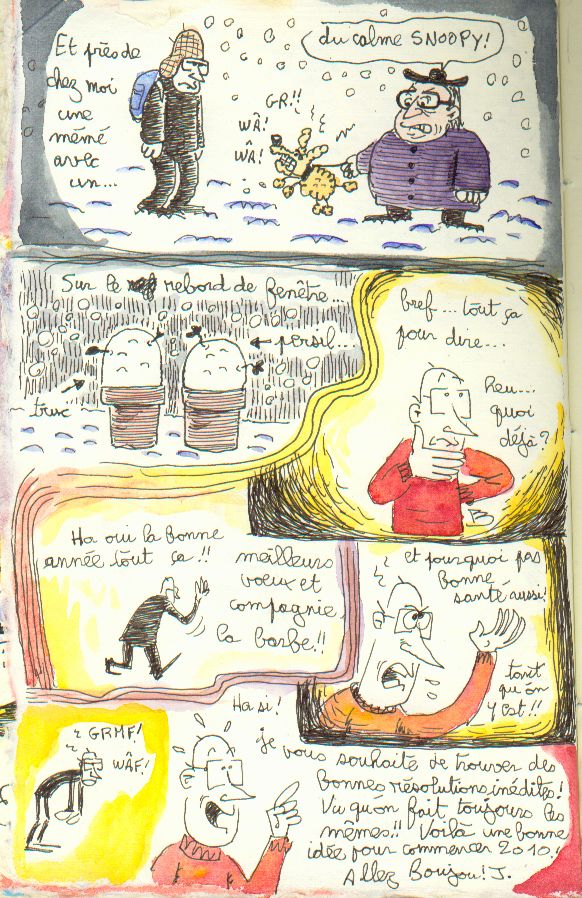 Et près de
chez moi
une
mémé
avec
un...
du calme SNOOPY!
GR!!
WÂ!
WÂ!
Sur le rebord de fenêtre...
← persil...
truc
bref... tout ça
pour dire...
Heu...
quoi
déjà?!
Ha oui la bonne
année tout ça!!
meilleurs
voeux et
compagnie
la barbe!!
et pourquoi pas
bonne
santé aussi!
tant
qu'on
y est!!
GRMF!
WÂF!
Ha si!
je vous souhaite de trouver des
bonnes résolutions inédites!
Vu qu'on fait toujours les
mêmes!! Voilà une bonne
idée pour commencer 2010!
Allez Boujou! J.